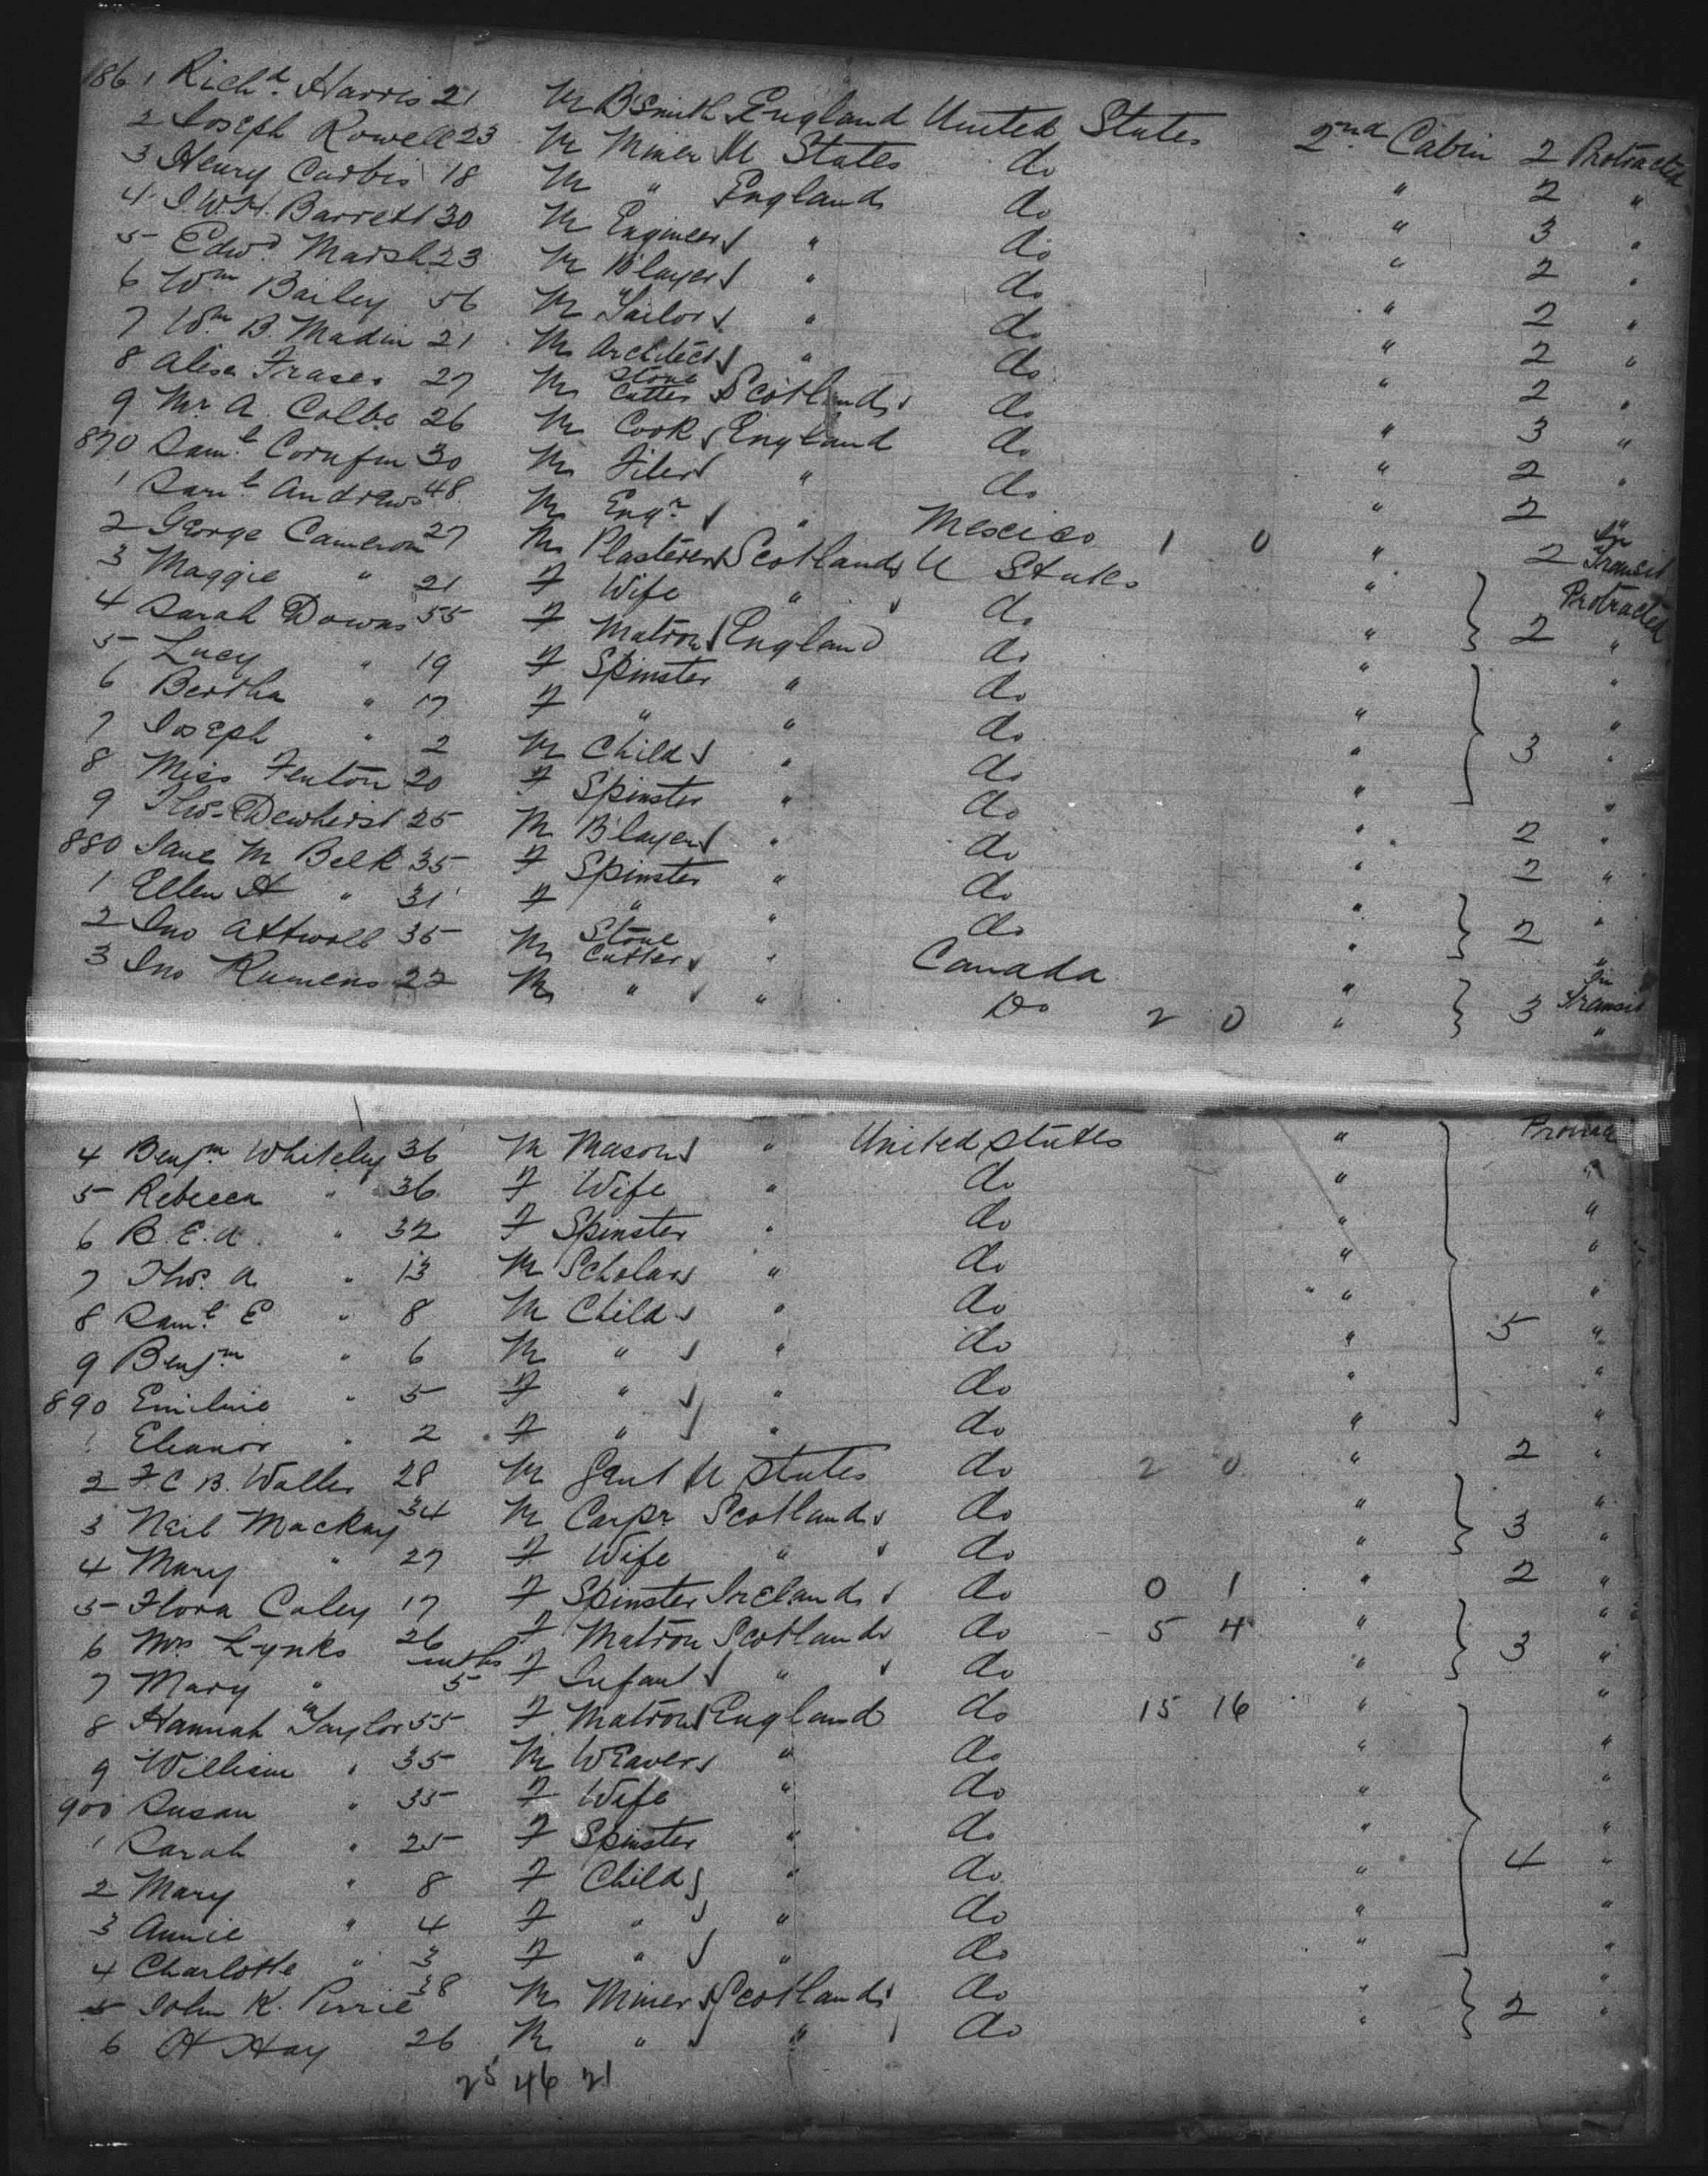 861 Richd Harris 21 M B Smith England United States 2nd Cabin 2 Protracted
2 Joseph Rowell 23 M Miner U States do " 2 "
3 Henry Curbis 18 M " England do " 3 "
4 J.W.H. Barrett 30 M Engineer " do " 2 "
5 Edwd Marsh 23 M B'layer " do " 2 "
6 Wm Bailey 56 M Tailor " do " 2 "
7 Wm B. Madin 21 M Architect " do " 2 "
8 Alexr Fraser 27 M Stone Cutter Scotland do " 3 "
9 Mr A. Colbe 26 M Cook England do " 2 "
870 Saml Cornfin 30 M Filer " do " 2
1 Saml Andrews 48 M Engr " Mexico 1 0 " 2 In Transit
2 George Cameron 27 M Plasterer Scotland U States " Protracted
3 Maggie " 21 F Wife " do " 2 "
4 Sarah Downs 55 F Matron England do " "
5 Lucy " 19 F Spinster " do " "
6 Bertha " 17 F " " do " 3 "
7 Joseph " 2 M Child " do " "
8 Miss Fenton 20 F Spinster " do " 2 "
9 Thos Dewhirst 25 M B'layer " do " 2 "
880 Jane M Belk 35 F Spinster " do " "
1 Ellen H " 31 F " " do " 2 "
2 Jno Attwell 35 M Stone Cutter " Canada " In Transit
3 Jno Rumens 22 M " " Do 2 0 " 3 "
4 Benjm Whiteley 36 M Mason " United States "
5 Rebecca " 36 F Wife " do " "
6 B.E.A. " 32 F Spinster " do " "
7 Thos. A " 13 M Scholar " do " "
8 Saml E " 8 M Child " do " "
9 Benjm " 6 M " " do " 5 "
890 Emiline " 5 F " " do " "
1 Eleanor " 2 F " " do " "
2 F C B. Waller 28 M Gent U States do 2 0 " 2 "
3 Neil Mackay 34 M Carpr Scotland do " "
4 Mary " 27 F Wife " do " 3 "
5 Flora Caley 17 F Spinster Ireland do 0 1 " 2 "
6 Mrs Lynks 26 F Matron Scotland do 5 4 " "
7 Mary " mths 5 F Infant " do " 3 "
8 Hannah Taylor 55 F Matron England do 15 16 " "
9 William " 35 M Weaver " do " "
900 Susan " 35 F Wife " do " "
1 Sarah " 25 F Spinster " do " "
2 Mary " 8 F Child " do " 4 "
3 Annie " 4 F " " do " "
4 Charlotte " 3 F " " do " "
5 John K. Pirrie 38 M Miner Scotland do " "
6 H Hay 26 M " " do " 2 "
25 46 21